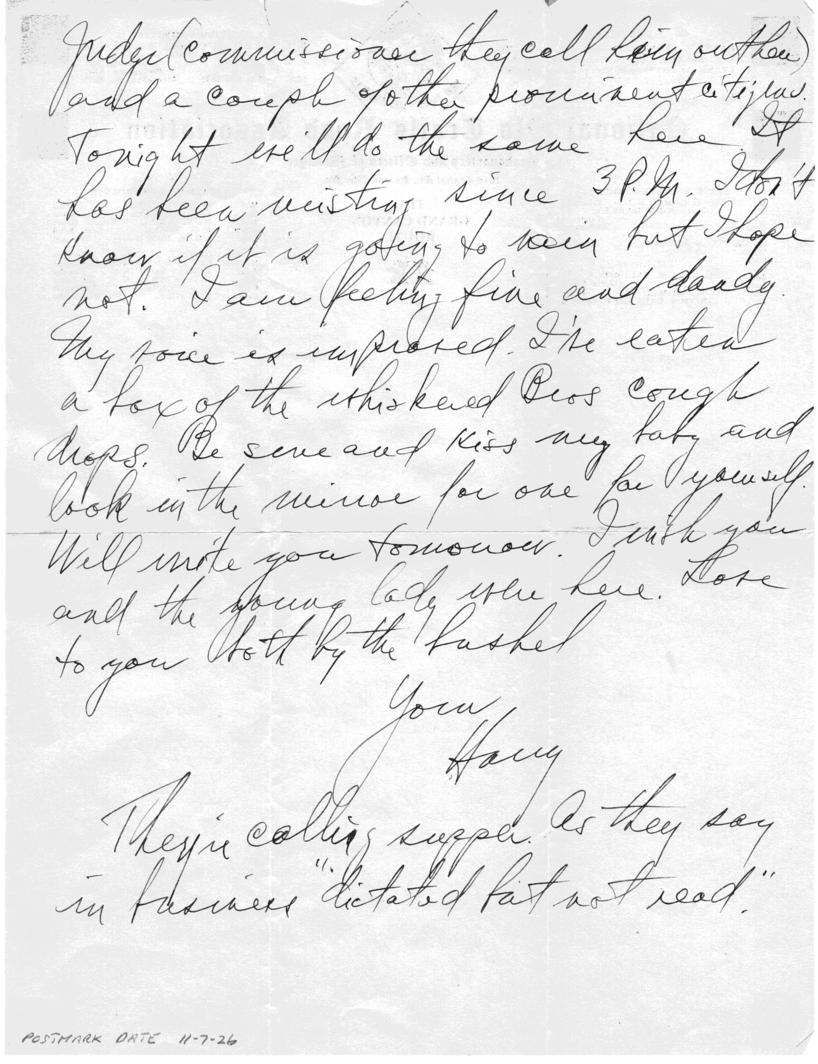 Judge (commissioner they call him out here)
and a couple of other prominent citizens.
Tonight we'll do the same here. It
has been misting since 3 P.M. I don't
know if it is going to rain but I hope
not. I am feeling fine and dandy.
My voice is improved. I've eaten
a box of the whiskered Bros cough
drops. Be sure and kiss my baby and
look in the mirror for one for yourself.
Will write you tomorrow. I wish you
and the young lady were here. Love
to you both by the bushel
Your
Harry
They're calling supper. As they say
in business "dictated but not read."
POSTMARK DATE 11-7-26